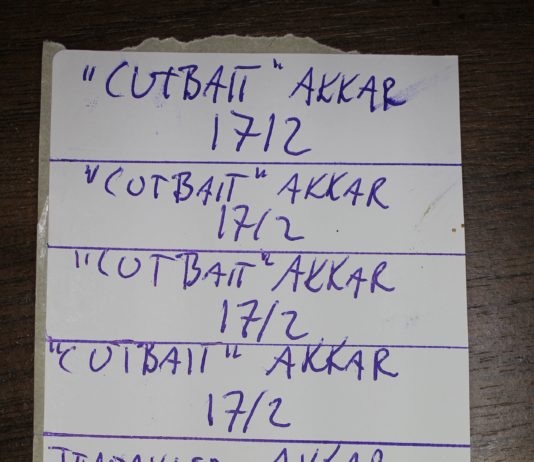 "CUTBAIT" AKKAR
17/2
"CUTBAIT" AKKAR
17/2
"CUTBAIT" AKKAR
17/2
"CUTBAIT" AKKAR
17/2
AKKAR